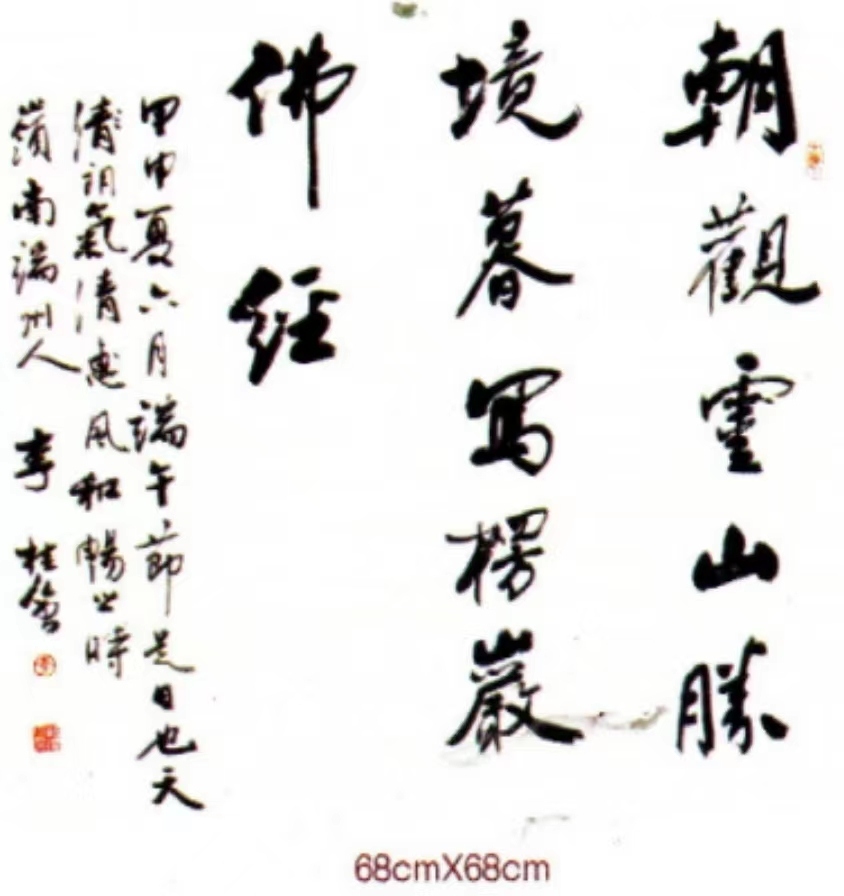 朝觀靈山勝
境暮寫楞嚴
佛經
甲申夏六月端午節是日也天
清朗氣清惠風和暢之時
嶺南端州人 李桂
68cmX68cm